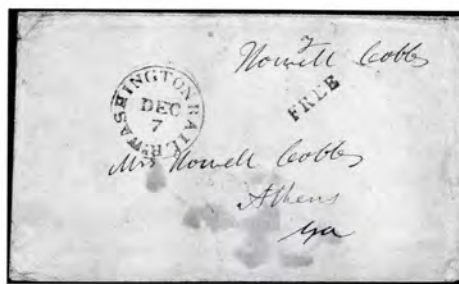 Howell Cobb
FREE
WASHINGTON RAIL.R.
DEC
7
Mrs Howell Cobb
Athens
Ga